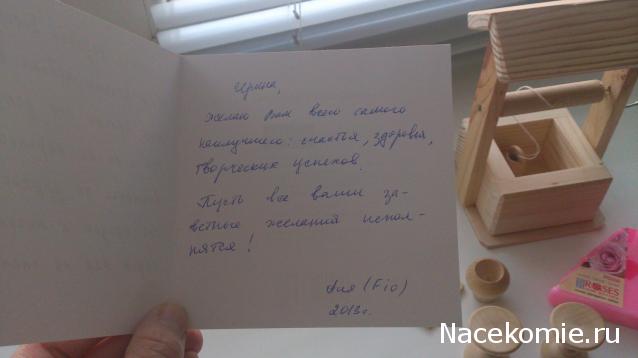 Ирина,
желаю Вам всего самого
наилучшего: счастья, здоровья,
творческих успехов.
Пусть все ваши за-
ветные желания испол-
нятся!
Аня (Fio)
2013г.
ROSES
Nacekomie.ru